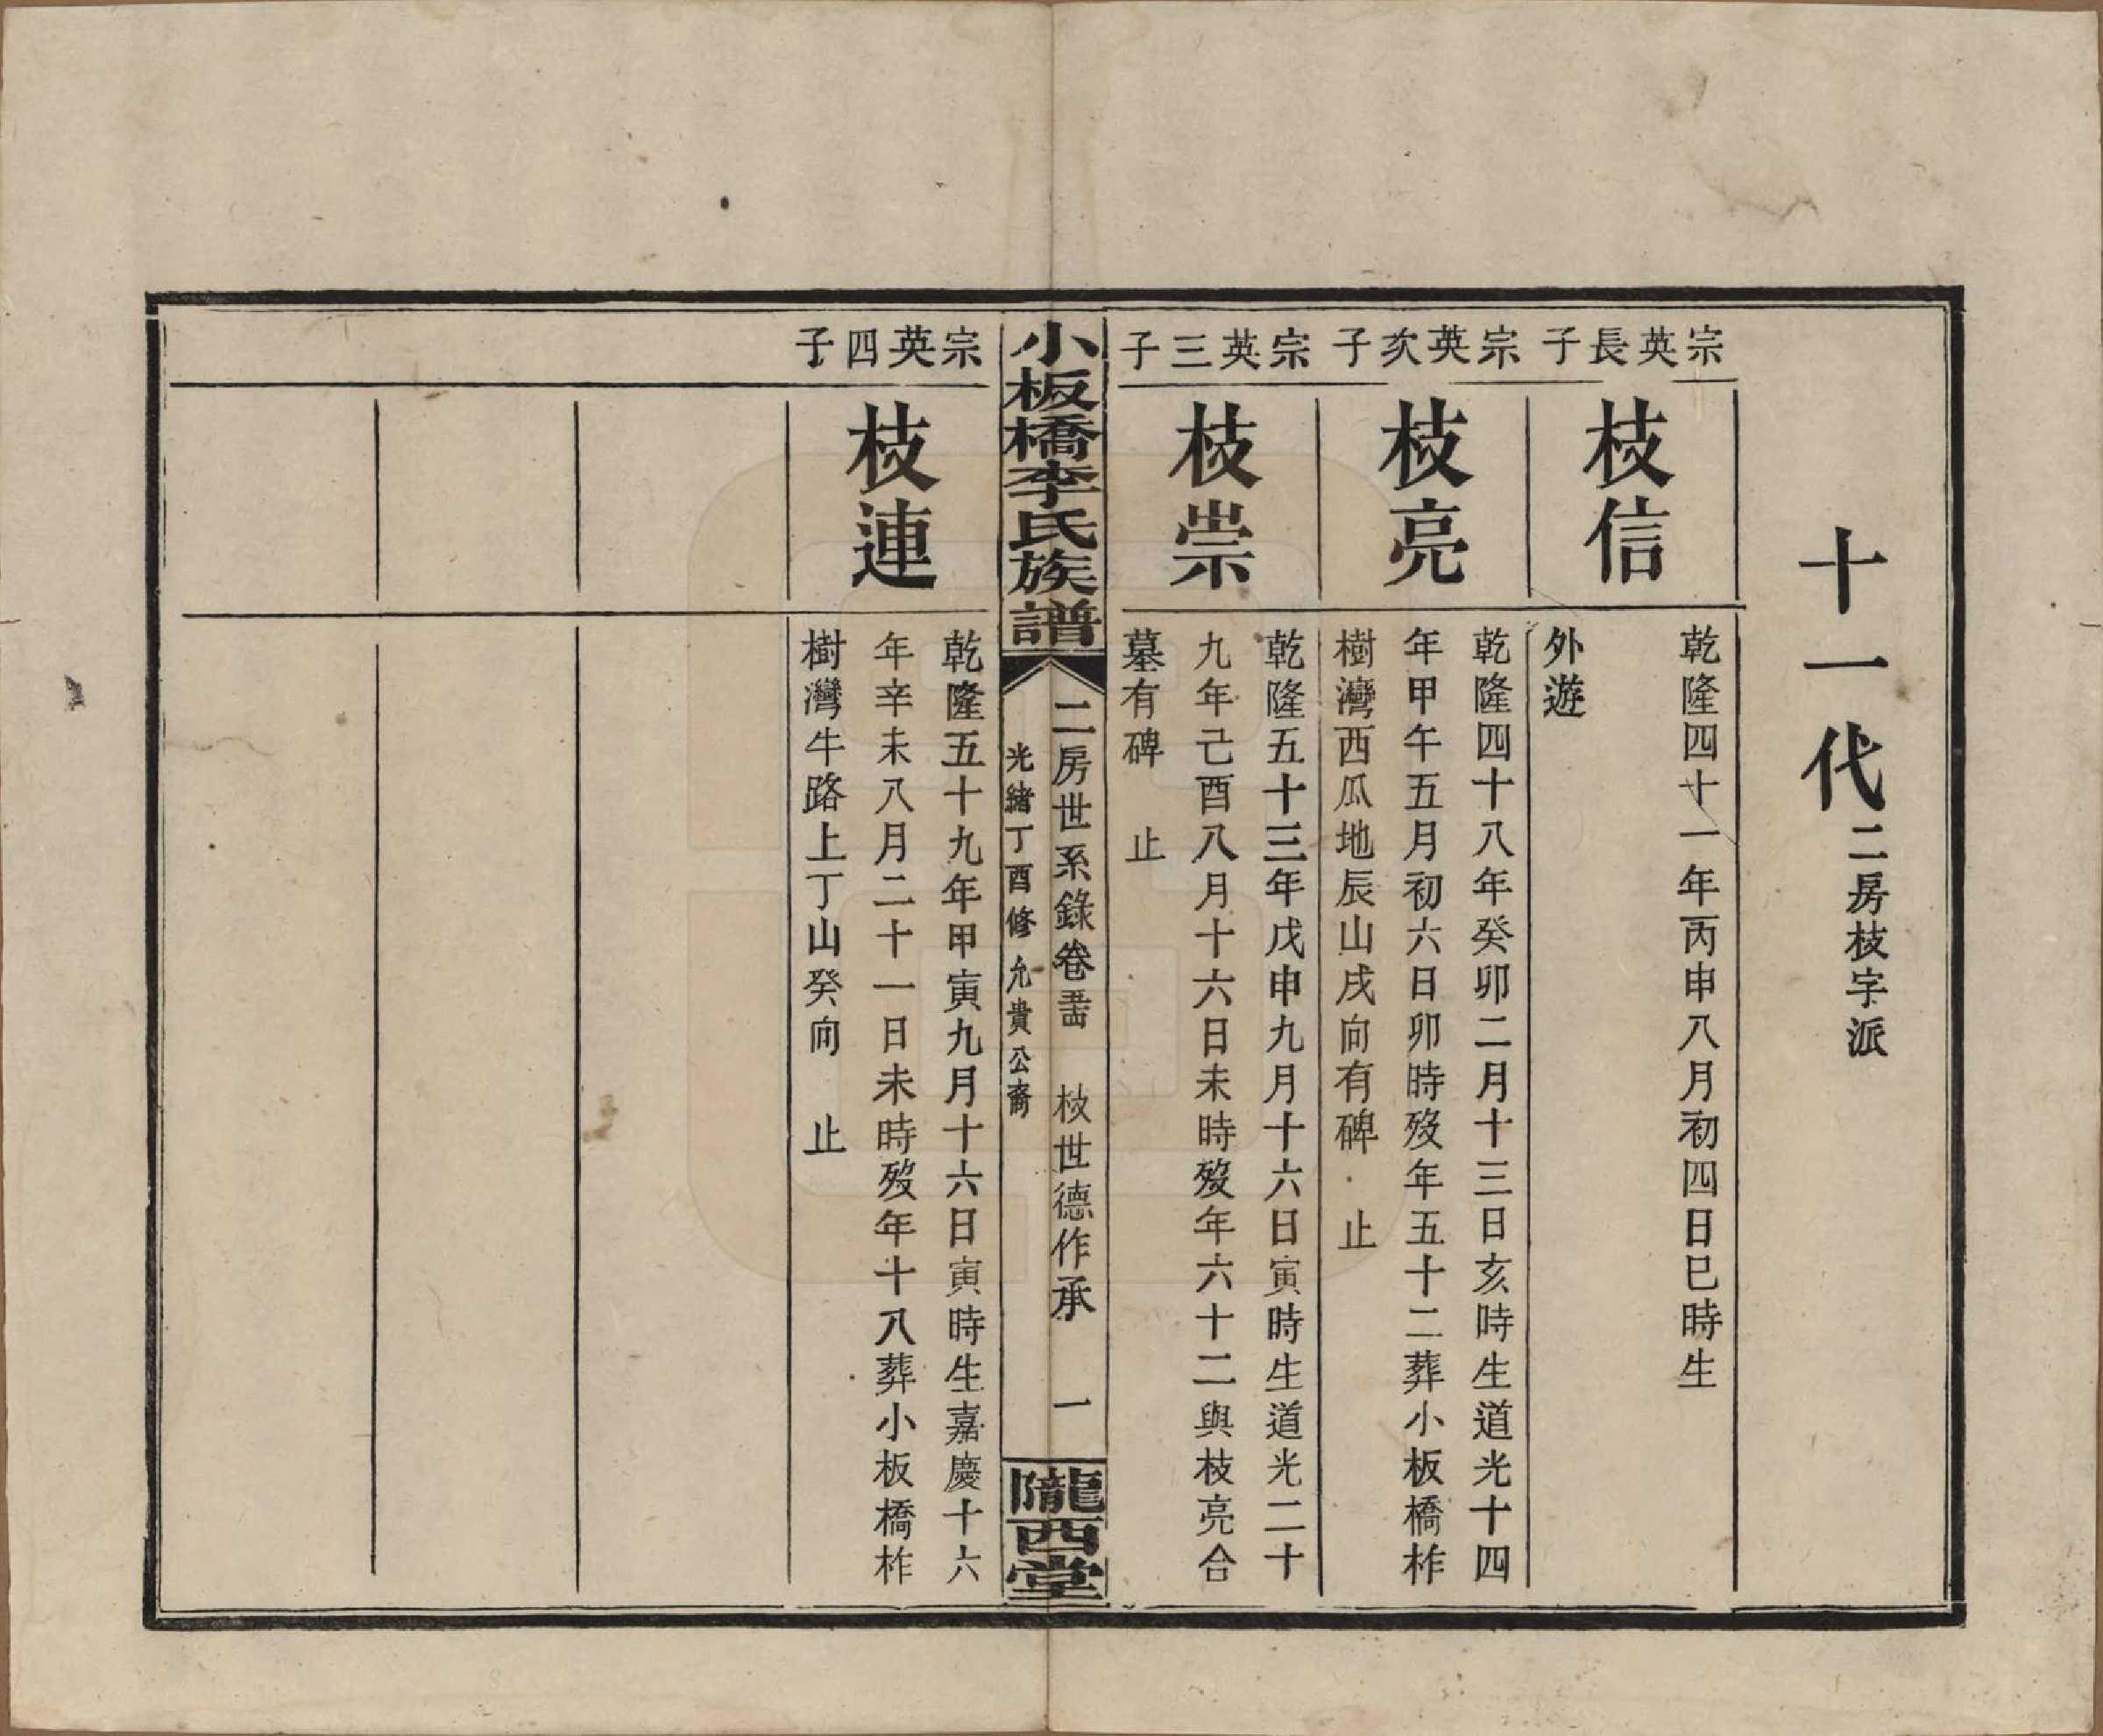 十一代二房枝字派
宗英長子
枝信
乾隆四十一年丙申八月初四日巳時生
外遊
宗英次子
枝亮
乾隆四十八年癸卯二月十三日亥時生道光十四
年甲午五月初六日卯時歿年五十二葬小板橋柞
樹灣西瓜地辰山戌向有碑 止
宗英三子
枝崇
乾隆五十三年戊申九月十六日寅時生道光二十
九年己酉八月十六日未時歿年六十二與枝亮合
墓有碑 止
小板橋李氏族譜
二房世系錄卷 枝世德作承 一
光緒丁酉修 允貴公裔
隴西堂
宗英四子
枝連
乾隆五十九年甲寅九月十六日寅時生嘉慶十六
年辛未八月二十一日未時歿年十八葬小板橋柞
樹灣牛路上丁山癸向 止